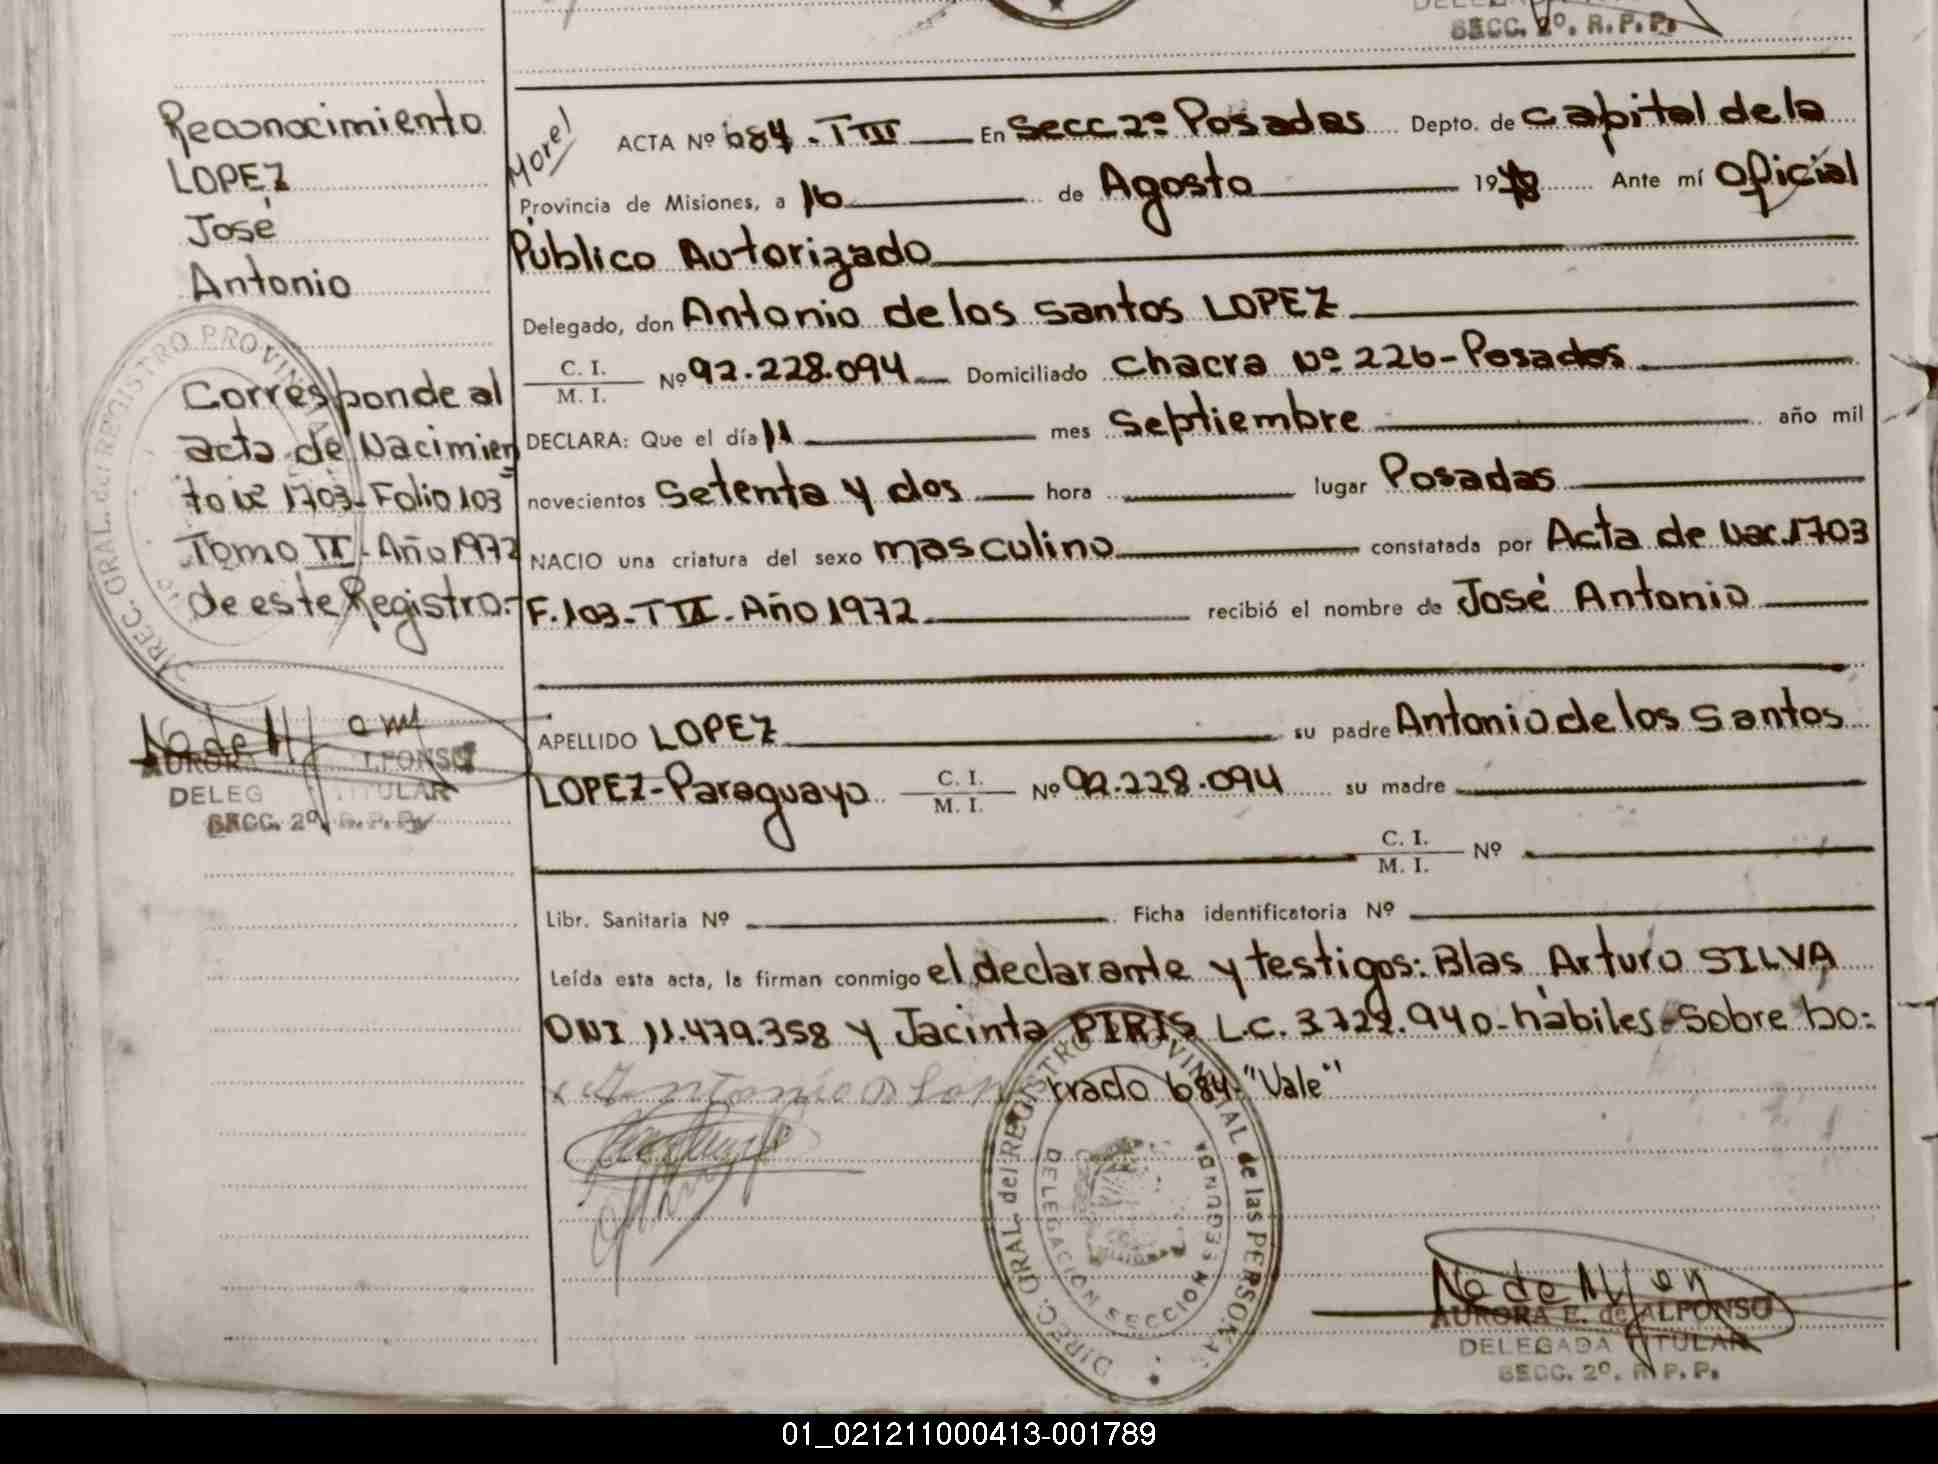 SECC. 2º. R. P. P.
Reconocimiento
LOPEZ
José
Antonio
Corresponde al
acta de Nacimien
to Nº 1703-Folio 103
Tomo II-Año 1972
de este Registro.-
DIREC. GRAL. del REGISTRO PROVIN
TITULAR
SECC. 2º. R. P. P.
Morel
ACTA Nº 684.-T III En Secc 2º Posadas Depto. de Capital de la
Provincia de Misiones, a 16 de Agosto 1978 Ante mí Oficial
Público Autorizado
Delegado, don Antonio de los Santos LOPEZ
C. I. / M. I. Nº 92.228.094 Domiciliado Chacra Nº 226-Posadas
DECLARA: Que el día 11 mes Septiembre año mil
novecientos Setenta y dos hora lugar Posadas
NACIO una criatura del sexo masculino constatada por Acta de Nac. 1703
F. 103-T II-Año 1972 recibió el nombre de José Antonio
APELLIDO LOPEZ su padre Antonio de los Santos
LOPEZ-Paraguayo C. I. / M. I. Nº 92.228.094 su madre
C. I. / M. I. Nº
Libr. Sanitaria Nº Ficha identificatoria Nº
Leída esta acta, la firman conmigo el declarante y testigos: Blas Arturo SILVA
DNI 11.479.358 y Jacinta PIRIS L.C. 3.722.940-hábiles-Sobre bo:
Antonio D Lop
rrado 684-"Vale"
DIREC. GRAL. del REGISTRO PROVINCIAL de las PERSONAS
DELEGACION SECCION SEGUNDA
AURORA E. de ALFONSO
DELEGADA TITULAR
SECC. 2º. R. P. P.
01_021211000413-001789